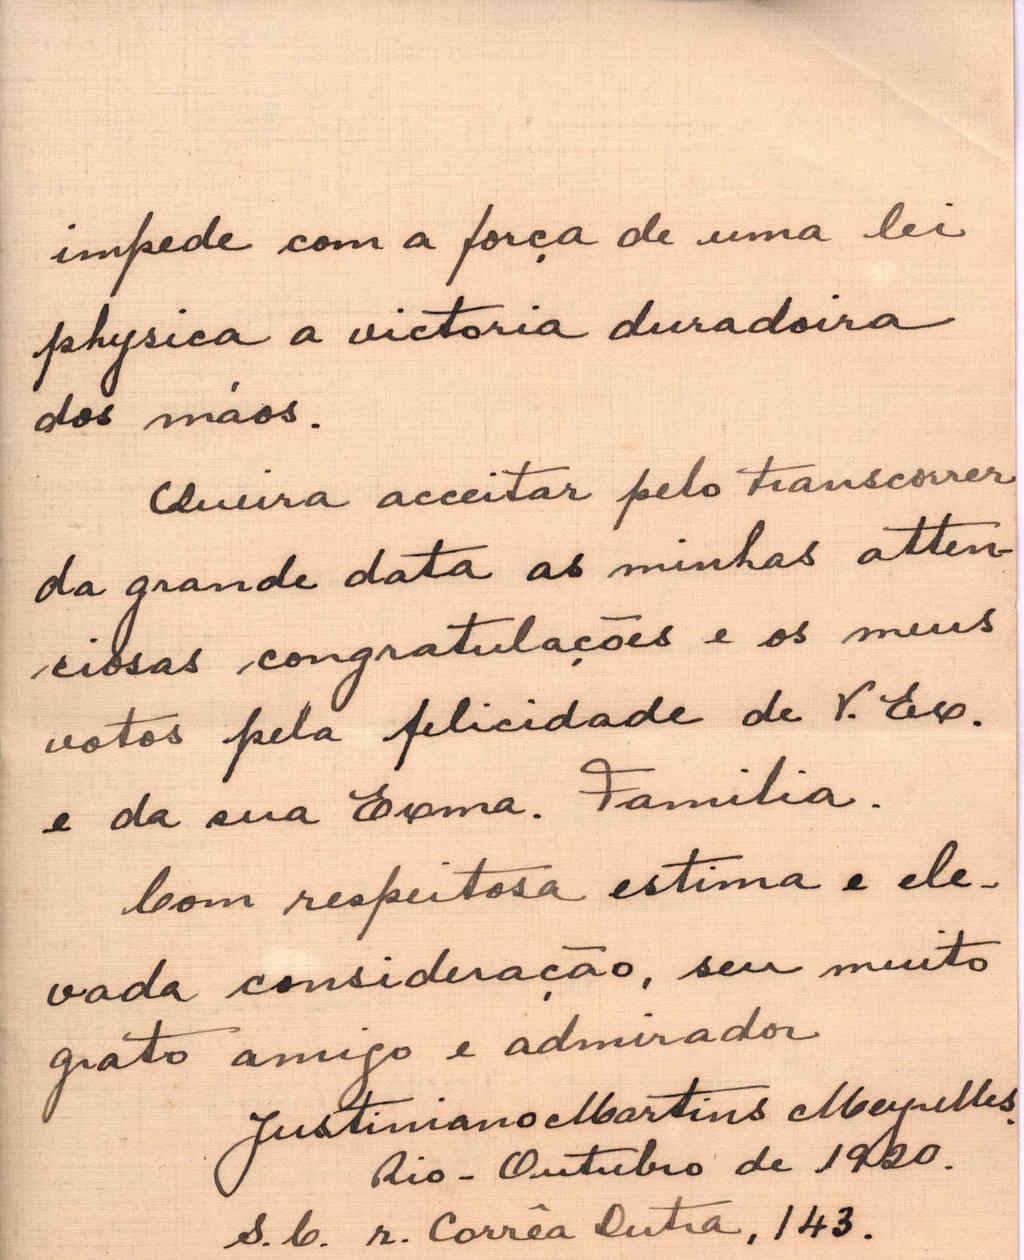 impede com a força de uma lei
physica a victoria duradoira
dos máos.
Queira acceitar pelo transcorrer
da grande data as minhas atten-
ciosas congratulações e os meus
votos pela felicidade de V. Ex.
e da sua Exma. Familia.
Com respeitosa estima e ele-
vada consideração, seu muito
grato amigo e admirador
Justiniano Martins Meyrelles.
Rio - Outubro de 1920.
S. C. r. Corrêa Dutra, 143.